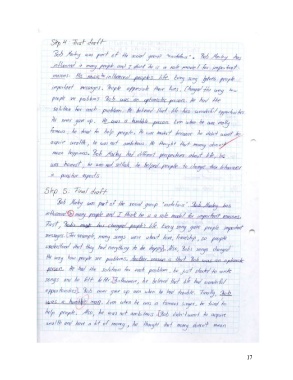 Step 4: First draft
Bob Marley was part of the social group "outsiders". Bob Marley has
influenced a many people and I think he is a role model for important
reasons. He music influenced people's life. Every song gives people
important messages. People appreciate their lives. Changed the way how
people see problems. Bob was an optimistic person. He had the
solution for each problem. He believed that life has wonderful opportunities
He never give up. He was a humble person. Even when he was really
famous, he tried to help people. He was modest because he didn't want to
acquire wealth, he was not ambitious. He thought that money doesn't
mean happiness. Bob Marley had different perspectives about life, he
was honest, he was not selfish, he helped people to change their behaviour
in positive aspects.
Step 5: Final draft
Bob Marley was part of the social group "outsiders". Bob Marley has
influenced many people and I think he is a role model for important reasons.
First, Bob's music has changed people's life. Every song gave people important
messages. For example, many songs were about love, friendship, so people
understood that they had everything to be happy. Also, Bob's songs changed
the way how people see problems. Another reason is that Bob was an optimistic
person. He had the solution for each problem, he just started to write
songs and he felt better. Furthermore, he believed that life had wonderful
opportunities. Bob never gave up even when he had trouble. Finally, Bob
was a humble man. Even when he was a famous singer, he tried to
help people. Also, he was not ambitious. Bob didn't want to acquire
wealth and have a lot of money, he thought that money doesn't mean
17